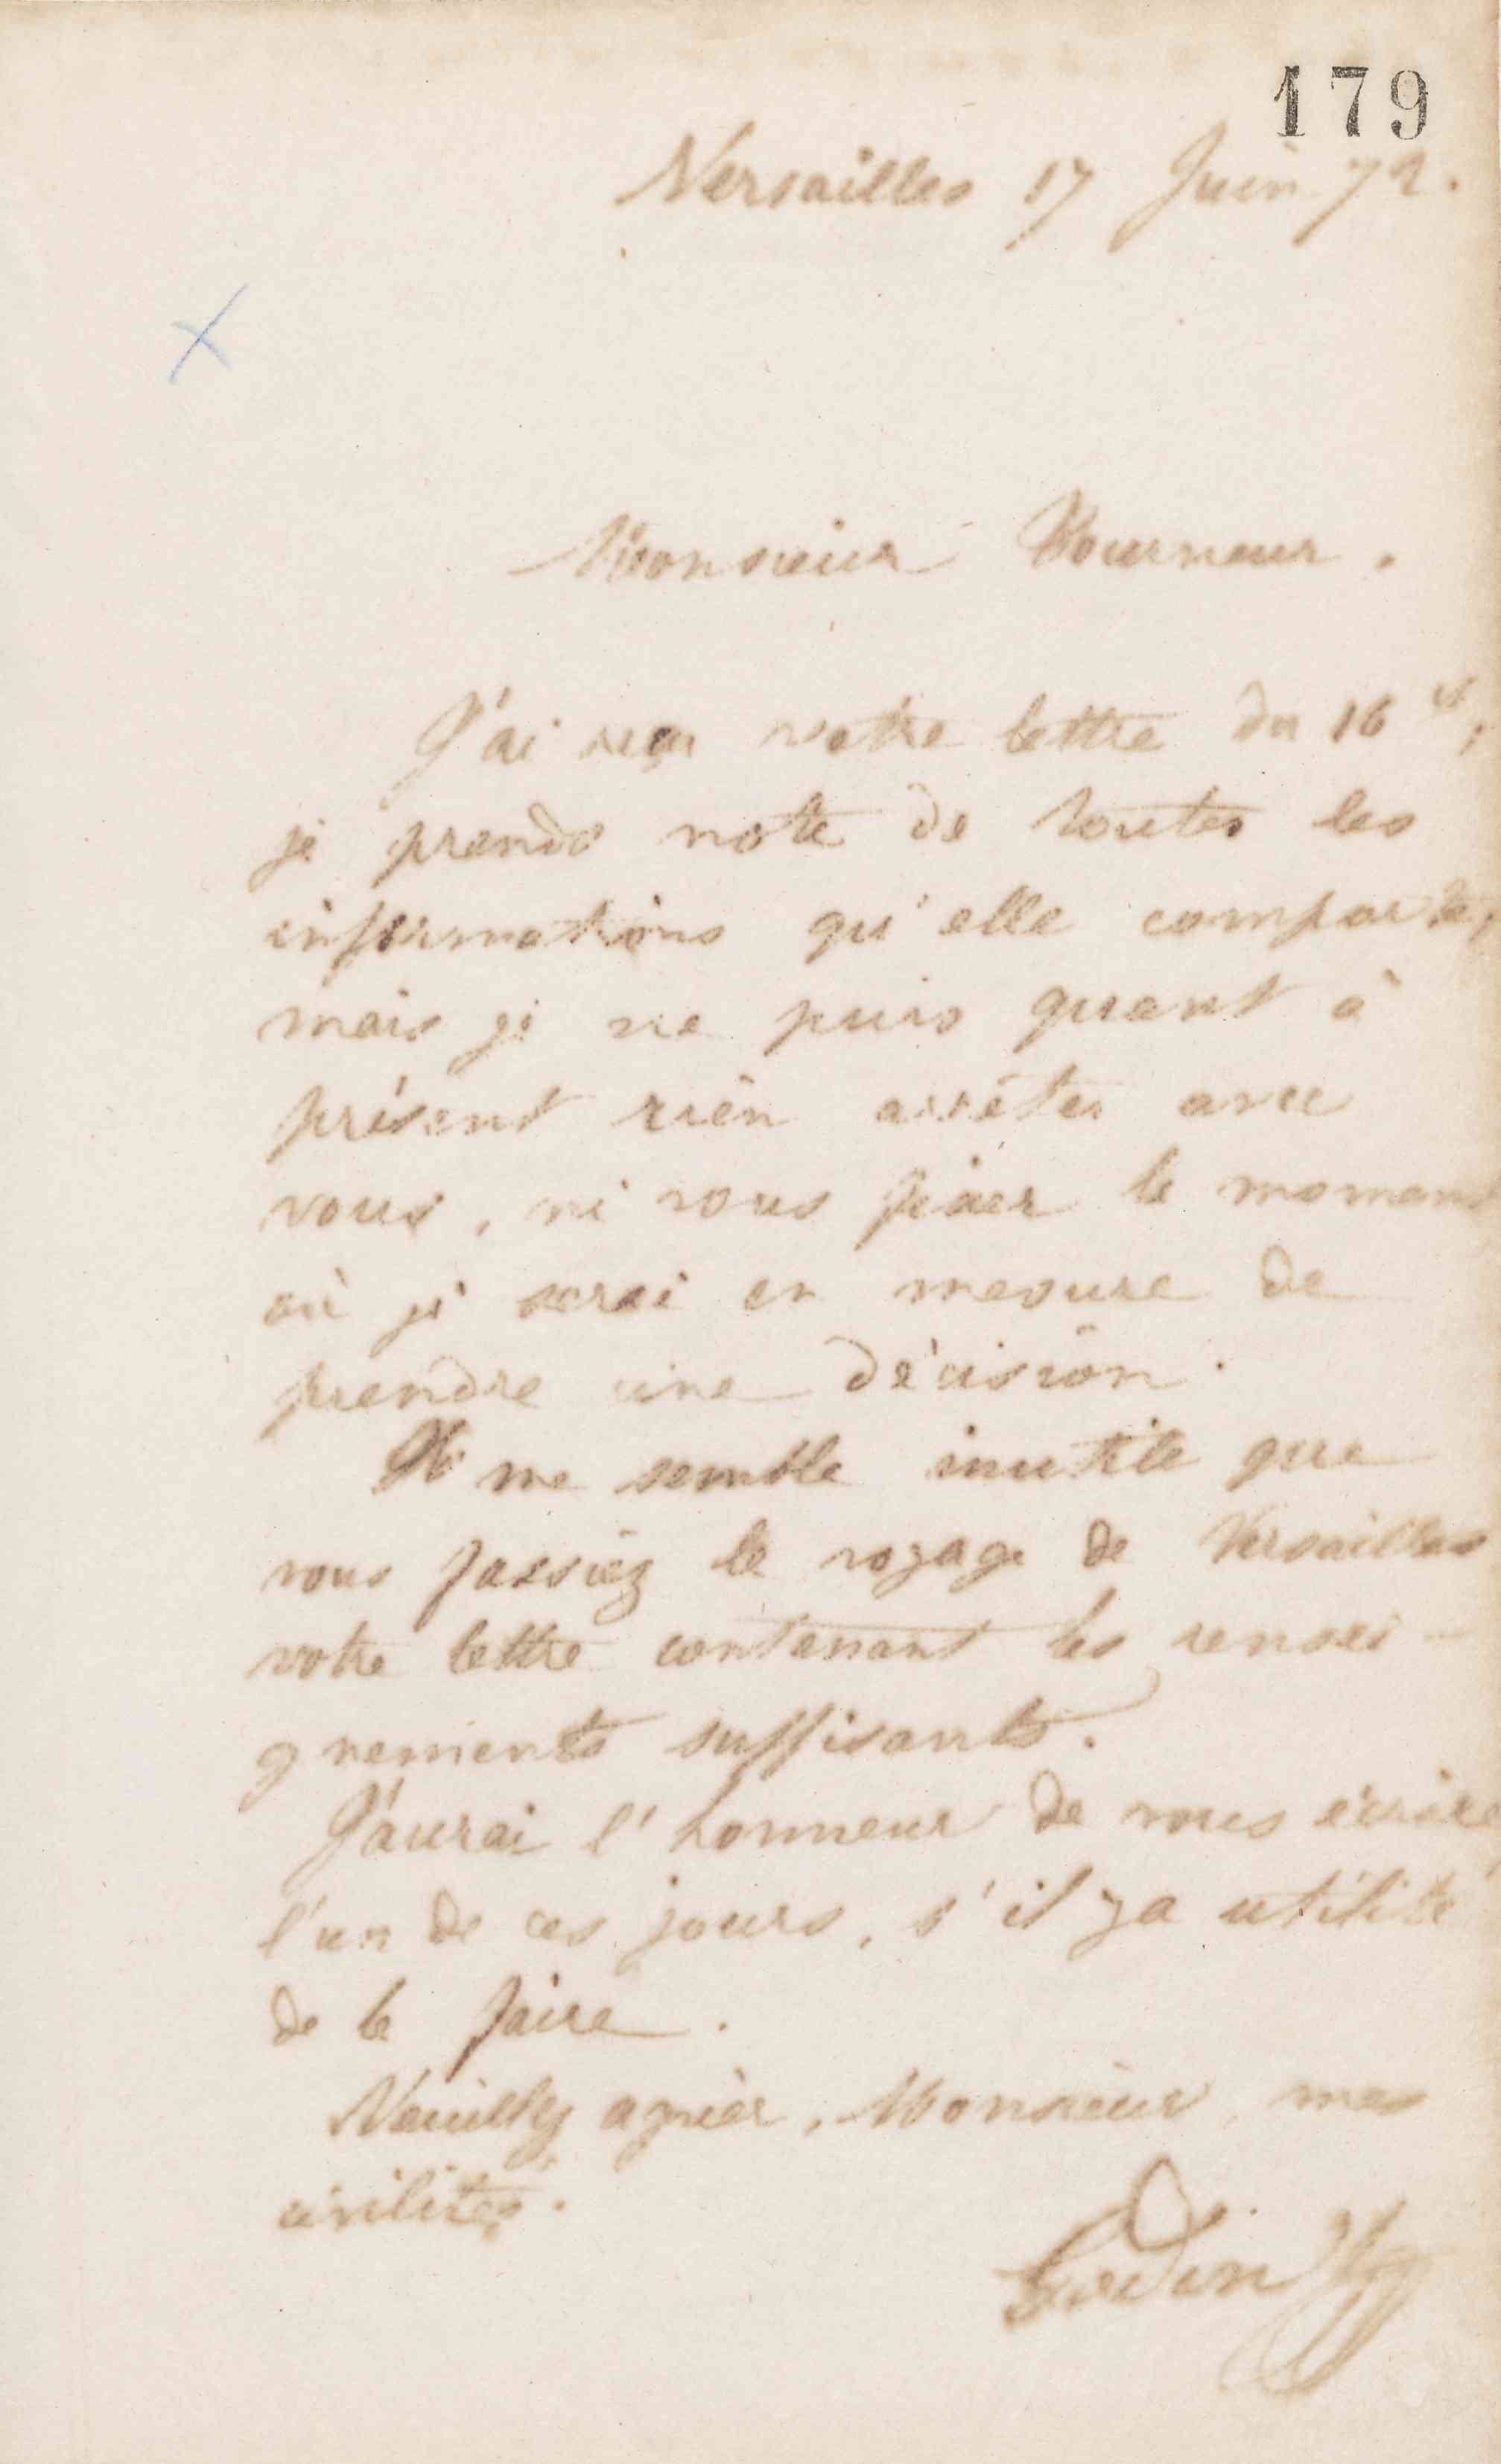 179
Versailles 17 Juin 72.
Monsieur Tourneur.
J'ai reçu votre lettre du 16 ct;
je prends note de toutes les
informations qu'elle comporte,
mais je ne puis quant à
présent rien arrêter avec
vous, ni vous fixer le moment
où je serai en mesure de
prendre une décision.
Il me semble inutile que
vous fassiez le voyage de Versailles
votre lettre contenant les rensei-
gnements suffisants.
J'aurai l'honneur de vous écrire,
l'un de ces jours, s'il y a utilité
de le faire.
Veuillez agréer, Monsieur, mes
civilités.
Godin